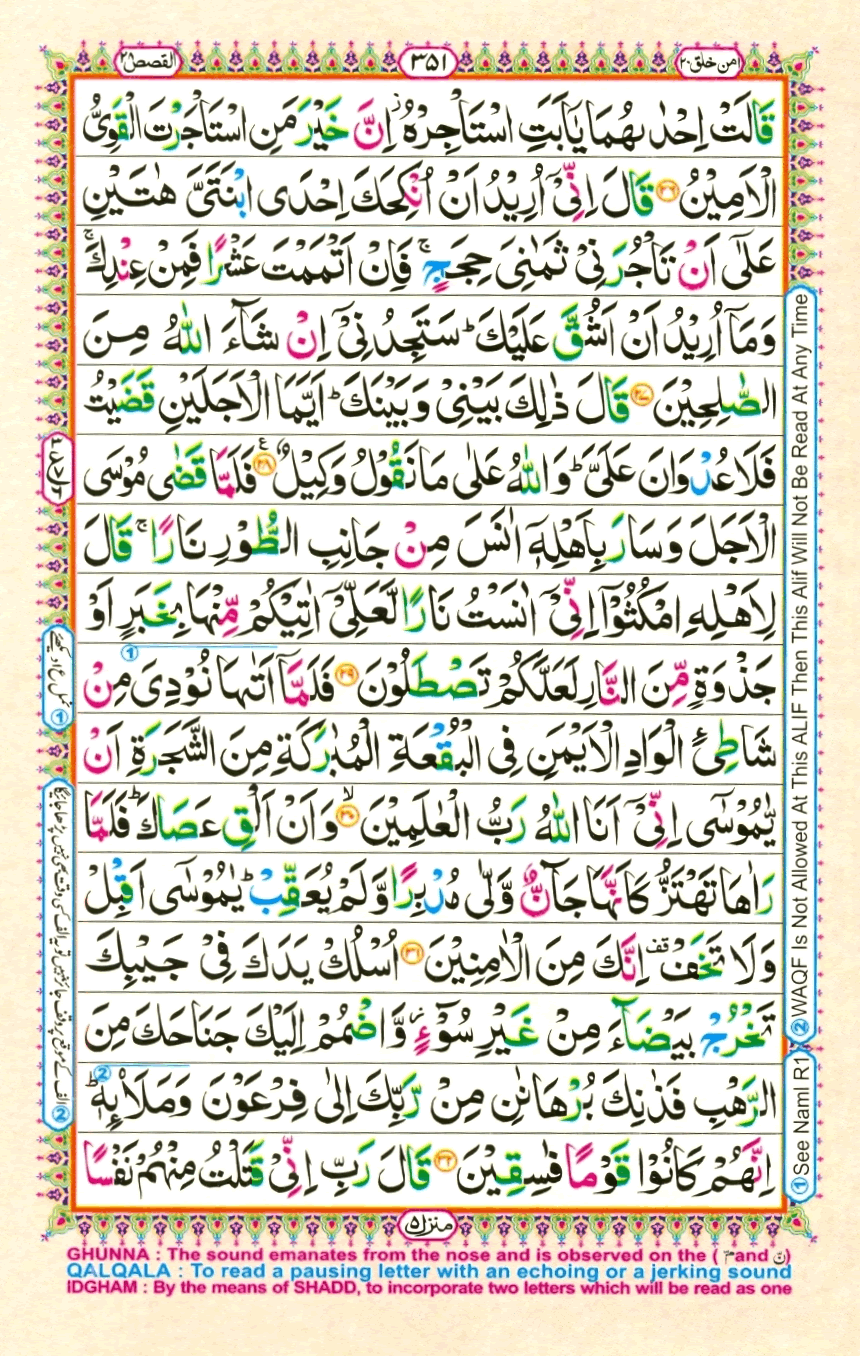 امن خلق ۲۰
۳۵۱
القصص ۲۸
قَالَتْ اِحْدٰىهُمَا يٰۤاَبَتِ اسْتَاْجِرْهُ ۫ اِنَّ خَيْرَ مَنِ اسْتَاْجَرْتَ الْقَوِيُّ
الْاَمِيْنُ ۟۲۶ قَالَ اِنِّيْۤ اُرِيْدُ اَنْ اُنْكِحَكَ اِحْدَى ابْنَتَيَّ هٰتَيْنِ
عَلٰۤى اَنْ تَاْجُرَنِيْ ثَمٰنِيَ حِجَجٍ ۚ فَاِنْ اَتْمَمْتَ عَشْرًا فَمِنْ عِنْدِكَ ۚ
وَمَاۤ اُرِيْدُ اَنْ اَشُقَّ عَلَيْكَ ؕ سَتَجِدُنِيْۤ اِنْ شَآءَ اللّٰهُ مِنَ
الصّٰلِحِيْنَ ۟۲۷ قَالَ ذٰلِكَ بَيْنِيْ وَبَيْنَكَ ؕ اَيَّمَا الْاَجَلَيْنِ قَضَيْتُ
فَلَا عُدْوَانَ عَلَيَّ ؕ وَاللّٰهُ عَلٰى مَا نَقُوْلُ وَكِيْلٌ ۟۲۸ فَلَمَّا قَضٰى مُوْسَى
الْاَجَلَ وَسَارَ بِاَهْلِهٖۤ اٰنَسَ مِنْ جَانِبِ الطُّوْرِ نَارًا ۚ قَالَ
لِاَهْلِهِ امْكُثُوْۤا اِنِّيْۤ اٰنَسْتُ نَارًا لَّعَلِّيْۤ اٰتِيْكُمْ مِّنْهَا بِخَبَرٍ اَوْ
جَذْوَةٍ مِّنَ النَّارِ لَعَلَّكُمْ تَصْطَلُوْنَ ۟۲۹ فَلَمَّاۤ اَتٰىهَا نُوْدِيَ مِنْ
شَاطِئِ الْوَادِ الْاَيْمَنِ فِي الْبُقْعَةِ الْمُبٰرَكَةِ مِنَ الشَّجَرَةِ اَنْ
يّٰمُوْسٰۤى اِنِّيْۤ اَنَا اللّٰهُ رَبُّ الْعٰلَمِيْنَ ۟ۙ۳۰ وَاَنْ اَلْقِ عَصَاكَ ؕ فَلَمَّا
رَاٰهَا تَهْتَزُّ كَاَنَّهَا جَآنٌّ وَّلّٰى مُدْبِرًا وَّلَمْ يُعَقِّبْ ؕ يٰمُوْسٰۤى اَقْبِلْ
وَلَا تَخَفْ ۫ قف اِنَّكَ مِنَ الْاٰمِنِيْنَ ۟۳۱ اُسْلُكْ يَدَكَ فِيْ جَيْبِكَ
تَخْرُجْ بَيْضَآءَ مِنْ غَيْرِ سُوْٓءٍ ۫ وَّاضْمُمْ اِلَيْكَ جَنَاحَكَ مِنَ
الرَّهْبِ فَذٰنِكَ بُرْهَانٰنِ مِنْ رَّبِّكَ اِلٰى فِرْعَوْنَ وَمَلَا۟ىِٕهٖ ؕ
اِنَّهُمْ كَانُوْا قَوْمًا فٰسِقِيْنَ ۟۳۲ قَالَ رَبِّ اِنِّيْ قَتَلْتُ مِنْهُمْ نَفْسًا
منزل ۵
② WAQF Is Not Allowed At This ALIF Then This Alif Will Not Be Read At Any Time
① See Naml R1
GHUNNA : The sound emanates from the nose and is observed on the ( مّ and نّ)
QALQALA : To read a pausing letter with an echoing or a jerking sound
IDGHAM : By the means of SHADD, to incorporate two letters which will be read as one